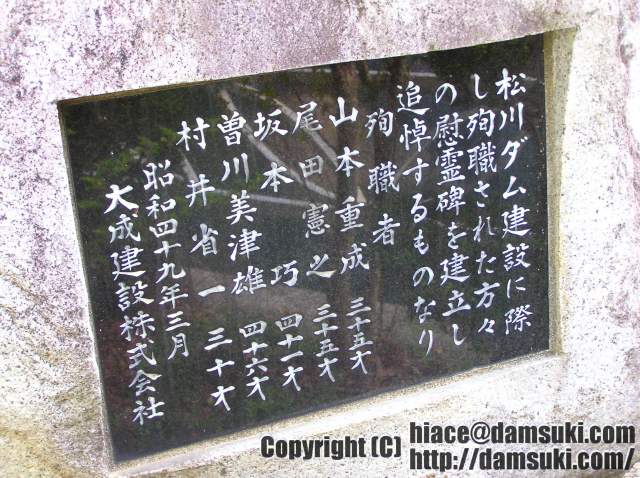 松川ダム建設に際
し殉職された方々
の慰霊碑を建立し
追悼するものなり
殉職者
山本重成 三十五才
尾田憲之 三十五才
坂本巧 四十一才
曽川美津雄 四十六才
村井省一 三十才
昭和四十九年三月
大成建設株式会社
Copyright (C) hiace@damsuki.com
http://damsuki.com/